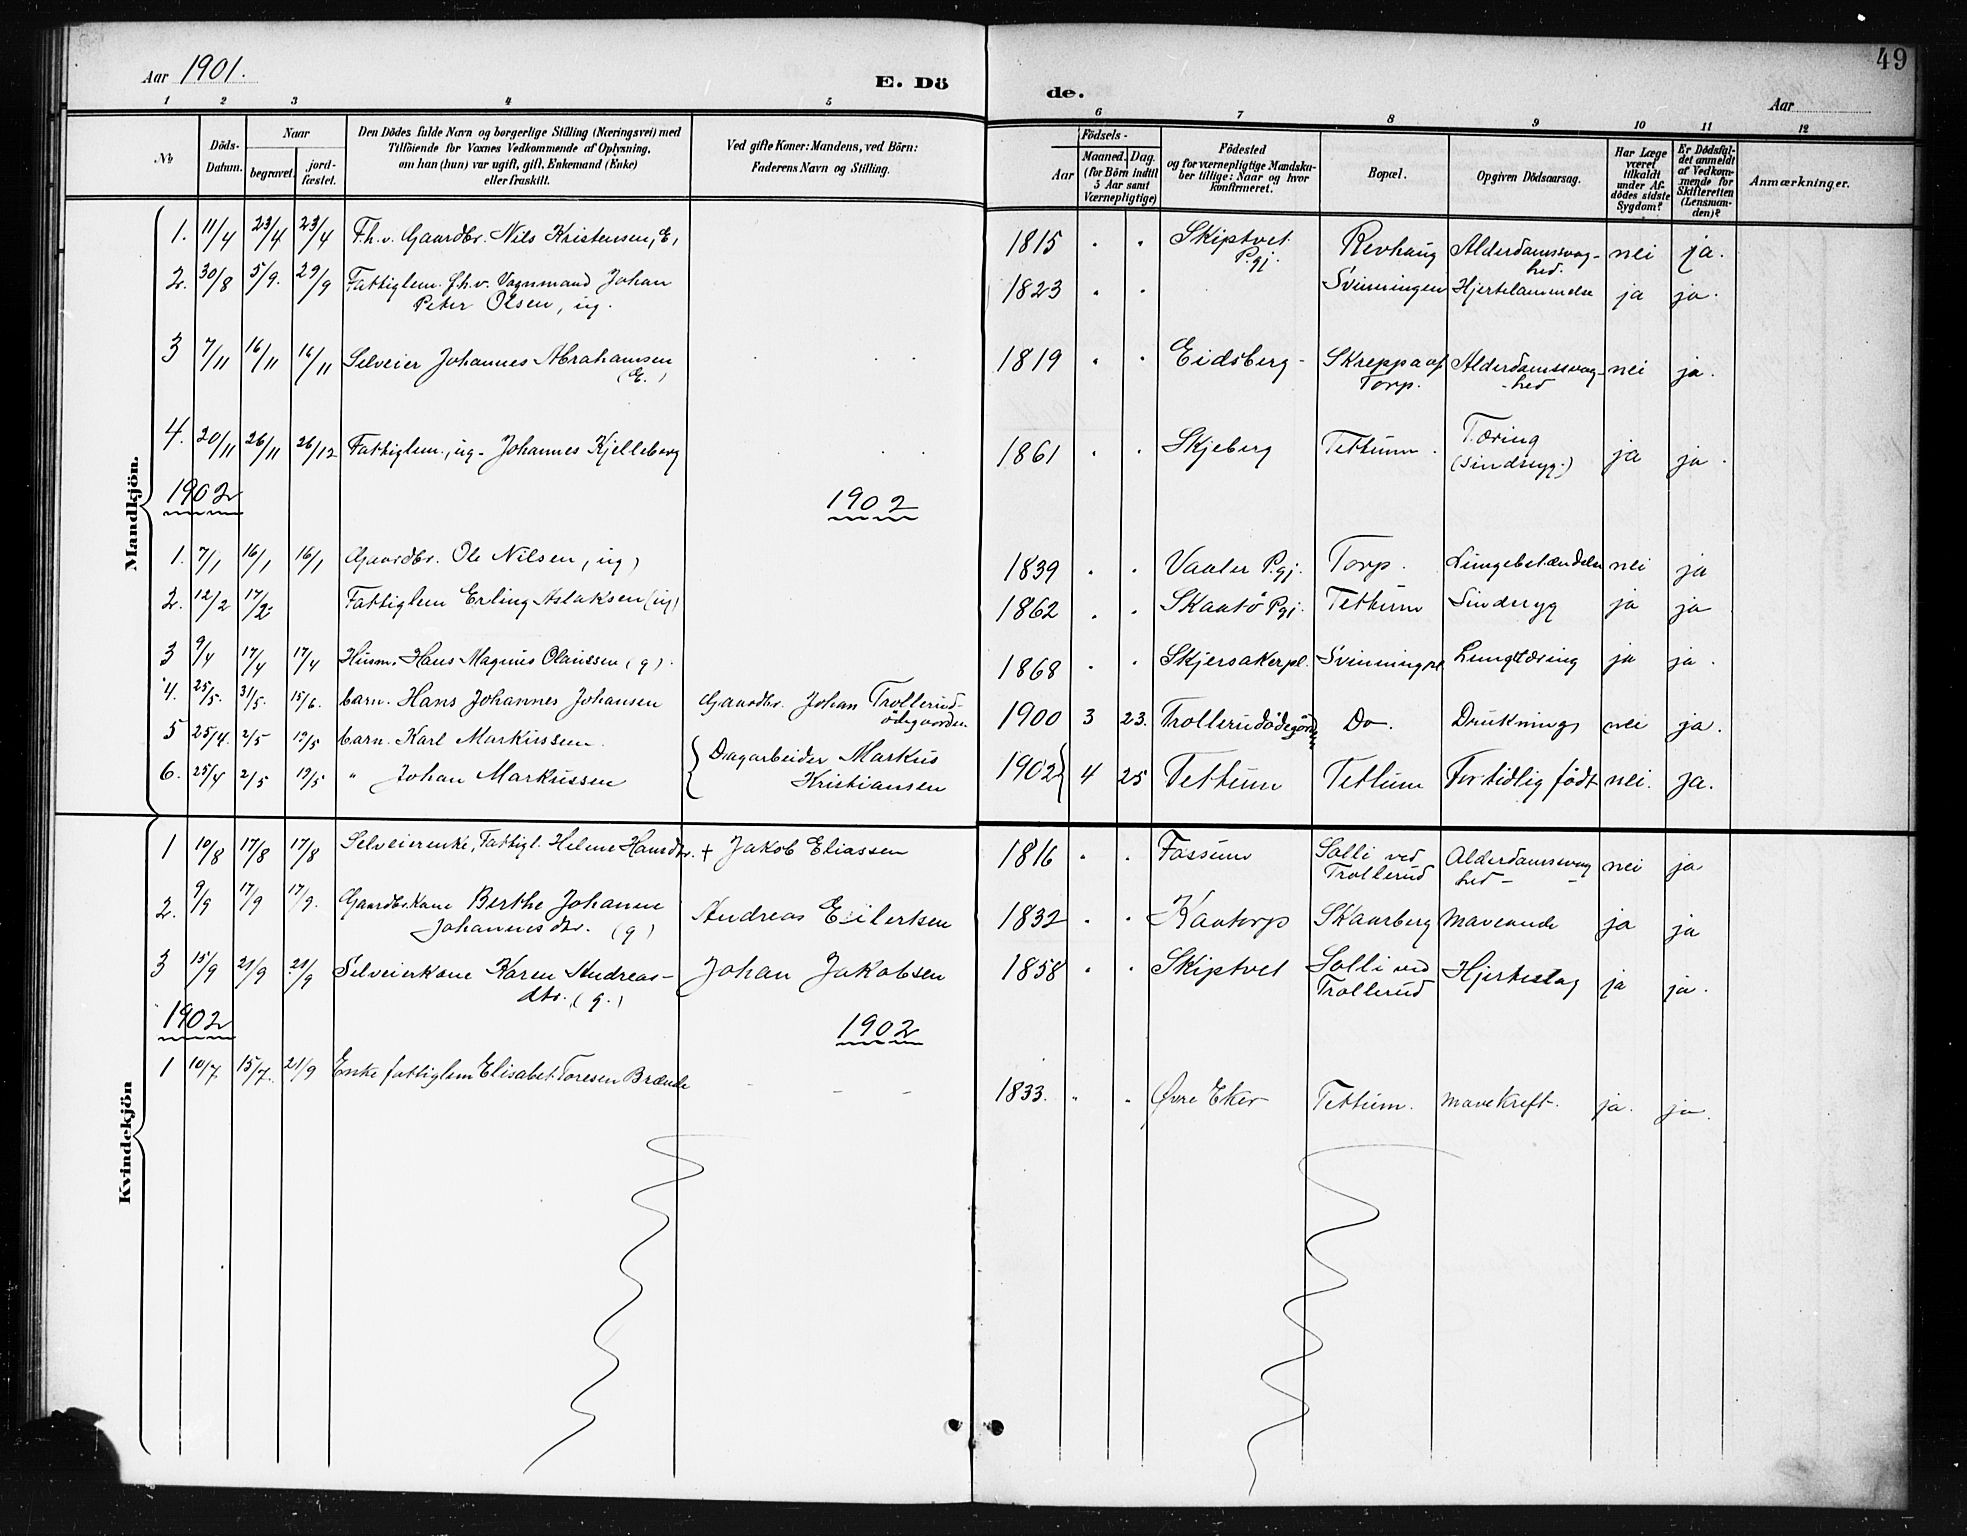 49
Aar 1901.
E. Dö
de.
Aar
1 2 3 4 5
6 7 8 9 10 11 12
No
Döds-Datum.
Naar
begravet.
jord-fæstet.
Den Dödes fulde Navn og borgerlige Stilling (Næringsvei) med
Tilföiende for Voxnes Vedkommende af Oplysning,
om han (hun) var ugift, gift, Enkemand (Enke)
eller fraskilt.
Ved gifte Koner: Mandens, ved Börn:
Faderens Navn og Stilling.
Födsels-
Aar
Maaned. Dag.
(for Börn indtil
5 Aar samt
Værnepligtige)
Födested
og for værnepligtige Mandska-
ber tillige: Naar og hvor
konfirmeret.
Bopæl.
Opgiven Dödsaarsag.
Har Læge
været
tilkaldt
under Af-
dödes sidste
Sygdom?
Er Dödsfal-
det anmeldt
af Vedkom-
mende for
Skifteretten
(Lensman-
den)?
Anmærkninger.
Mandkjön.
1. 11/4 23/4 23/4 F.h.v. Gaardbr. Nils Kristensen, E, 1815 " " Skiptvet Pgj. Revhaug Alderdomssvag-hed. nei ja.
2. 30/8 5/9. 29/9 Fattiglem. f.h.v. Vognmand Johan
Peter Olsen, ug. 1823 " " Svinningen Hjertelammelse ja ja.
3 7/11 16/11 16/11 Selveier Johannes Abrahamsen
(E.) 1819 " " Eidsberg - Skreppa af Torp. Alderdomssvag-hed nei ja.
4. 20/11 26/11 26/12 Fattiglem., ug. Johannes Kjelleberg 1861 " " Skjeberg Tettum. Tæring (sindssyg.) ja ja.
1902 1902
1. 7/1 16/1 16/1 Gaardbr. Ole Nilsen, ug) 1839 " " Vaaler Pgj. Torp. Lungebetændelse nei ja
2. 12/2 17/2. Fattiglem Erling Aslaksen (ug) 1862 " " Skaatö Pgj. Tettum Sindssyg ja ja
3 9/4 17/4 17/4 Husm. Hans Magnus Olaussen (g). 1868 " " Skjersakerpl. Svinningpl. Lungetæring ja ja.
4. 25/5. 31/5. 15/6. barn. Hans Johannes Johansen Gaardbr. Johan Trollerud-
ödegaarden 1900 3 23. Trollerudödegården Do. Drukning nei ja.
5 25/4. 2/5 19/5 barn. Karl Markussen.
6. 25/4 2/5 19/5 " Johan Markussen { Dagarbeider Markus
Kristiansen 1902} 4 25 Tettum Tettum For tidlig födt nei. ja.
Kvindekjön
1 10/8 17/8 17/8 Selveierenke, Fattigl. Helene Hansdtr. + Jakob Eliassen 1816 " " Fossum Solli ved Trollerud Alderdomssvag hed- nei ja
2. 9/9 17/9 17/9. Gaardbr.kone Berthe Johanne
Johannesdtr. (g) Andreas Eilertsen 1832 " " Kaatorp Skaarberg Maveonde ja ja
3 15/9 21/9 21/9 Selveierkone Karen Andreas-
dtr. (g.) Johan Jakobsen 1858 " " Skiptvet Solli ved Trollerud Hjerteslag ja ja.
1902 1902
1 10/7. 15/7. 21/9 Enke fattiglem Elisabet Toresen Brænde 1833. " " Øvre Eker Tettum. Mavekreft. ja. ja.